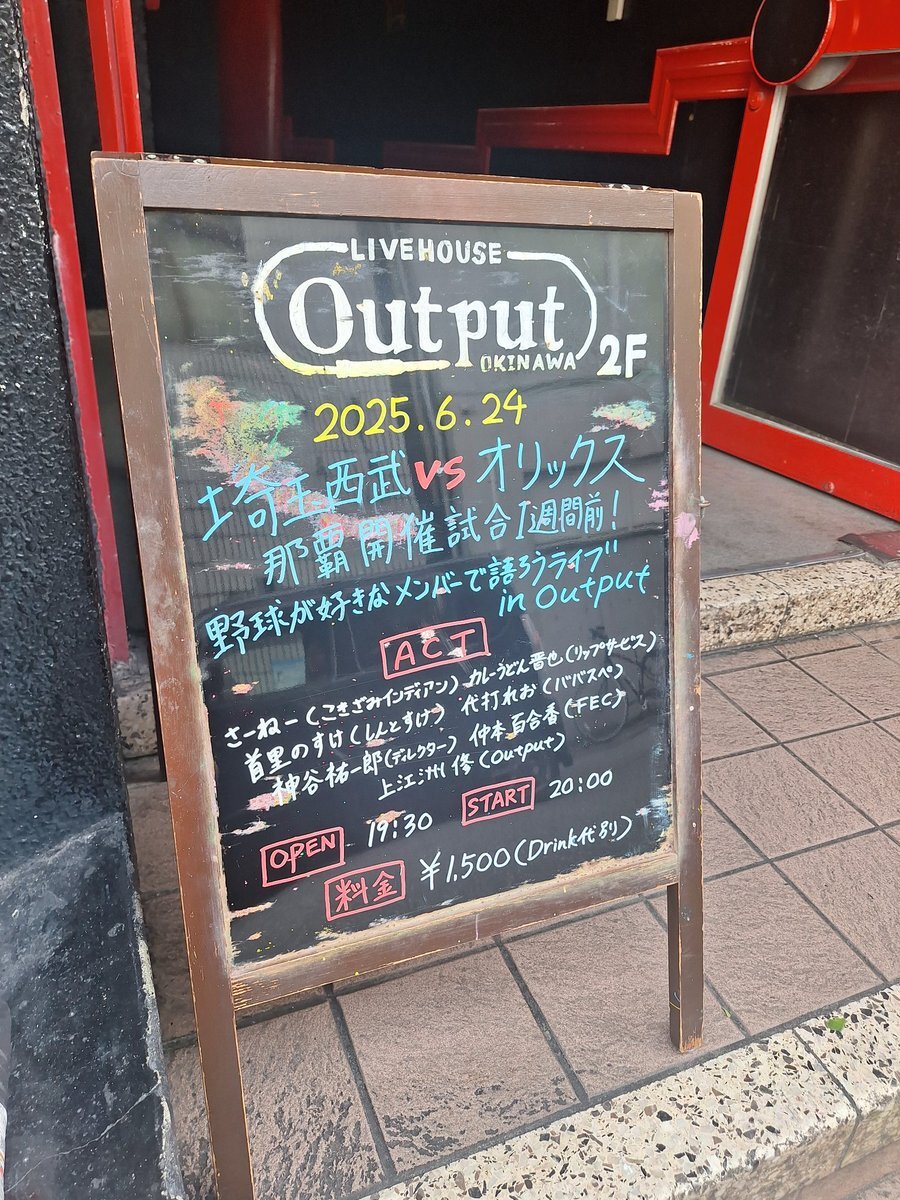 LIVEHOUSE
Output
OKINAWA 2F
2025.6.24
埼玉西武vsオリックス
那覇開催試合1週間前!
野球が好きなメンバーで語ろうライブ
in Output
ACT
さーねー(こきざみインディアン) カレーうどん晋也(リップサービス)
首里のすけ(しんとすけ) 代打れお(ババスペ)
神谷祐一郎(ディレクター) 仲本百合香(FEC)
上江洲修(Output)
OPEN 19:30 START 20:00
料金 ¥1,500(Drink代別)